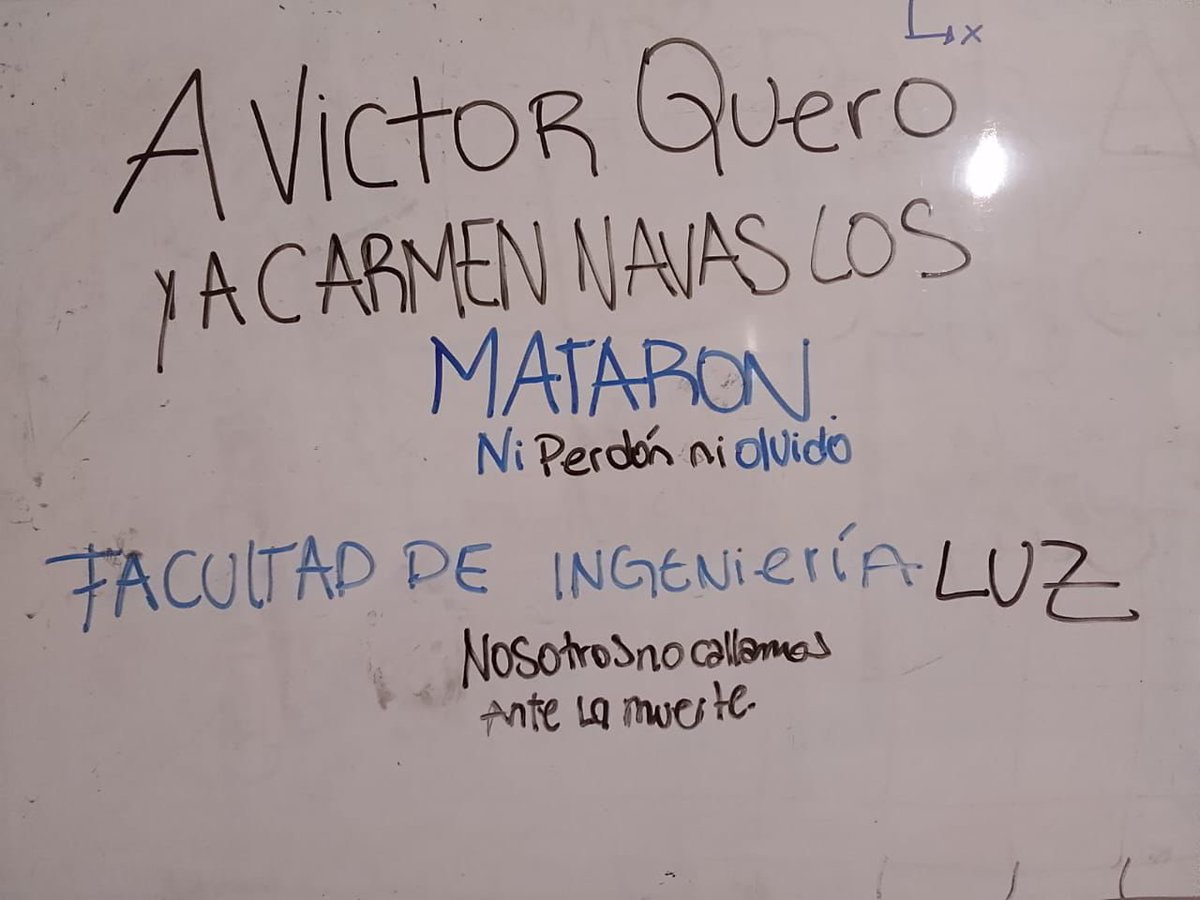 Lx
A VICTOR QuerO
y A CARMEN NAVAS LOS
MATARON.
Ni Perdón ni olvido
FACULTAD DE INGENiería LUZ
Nosotros no callamos
Ante la muerte.